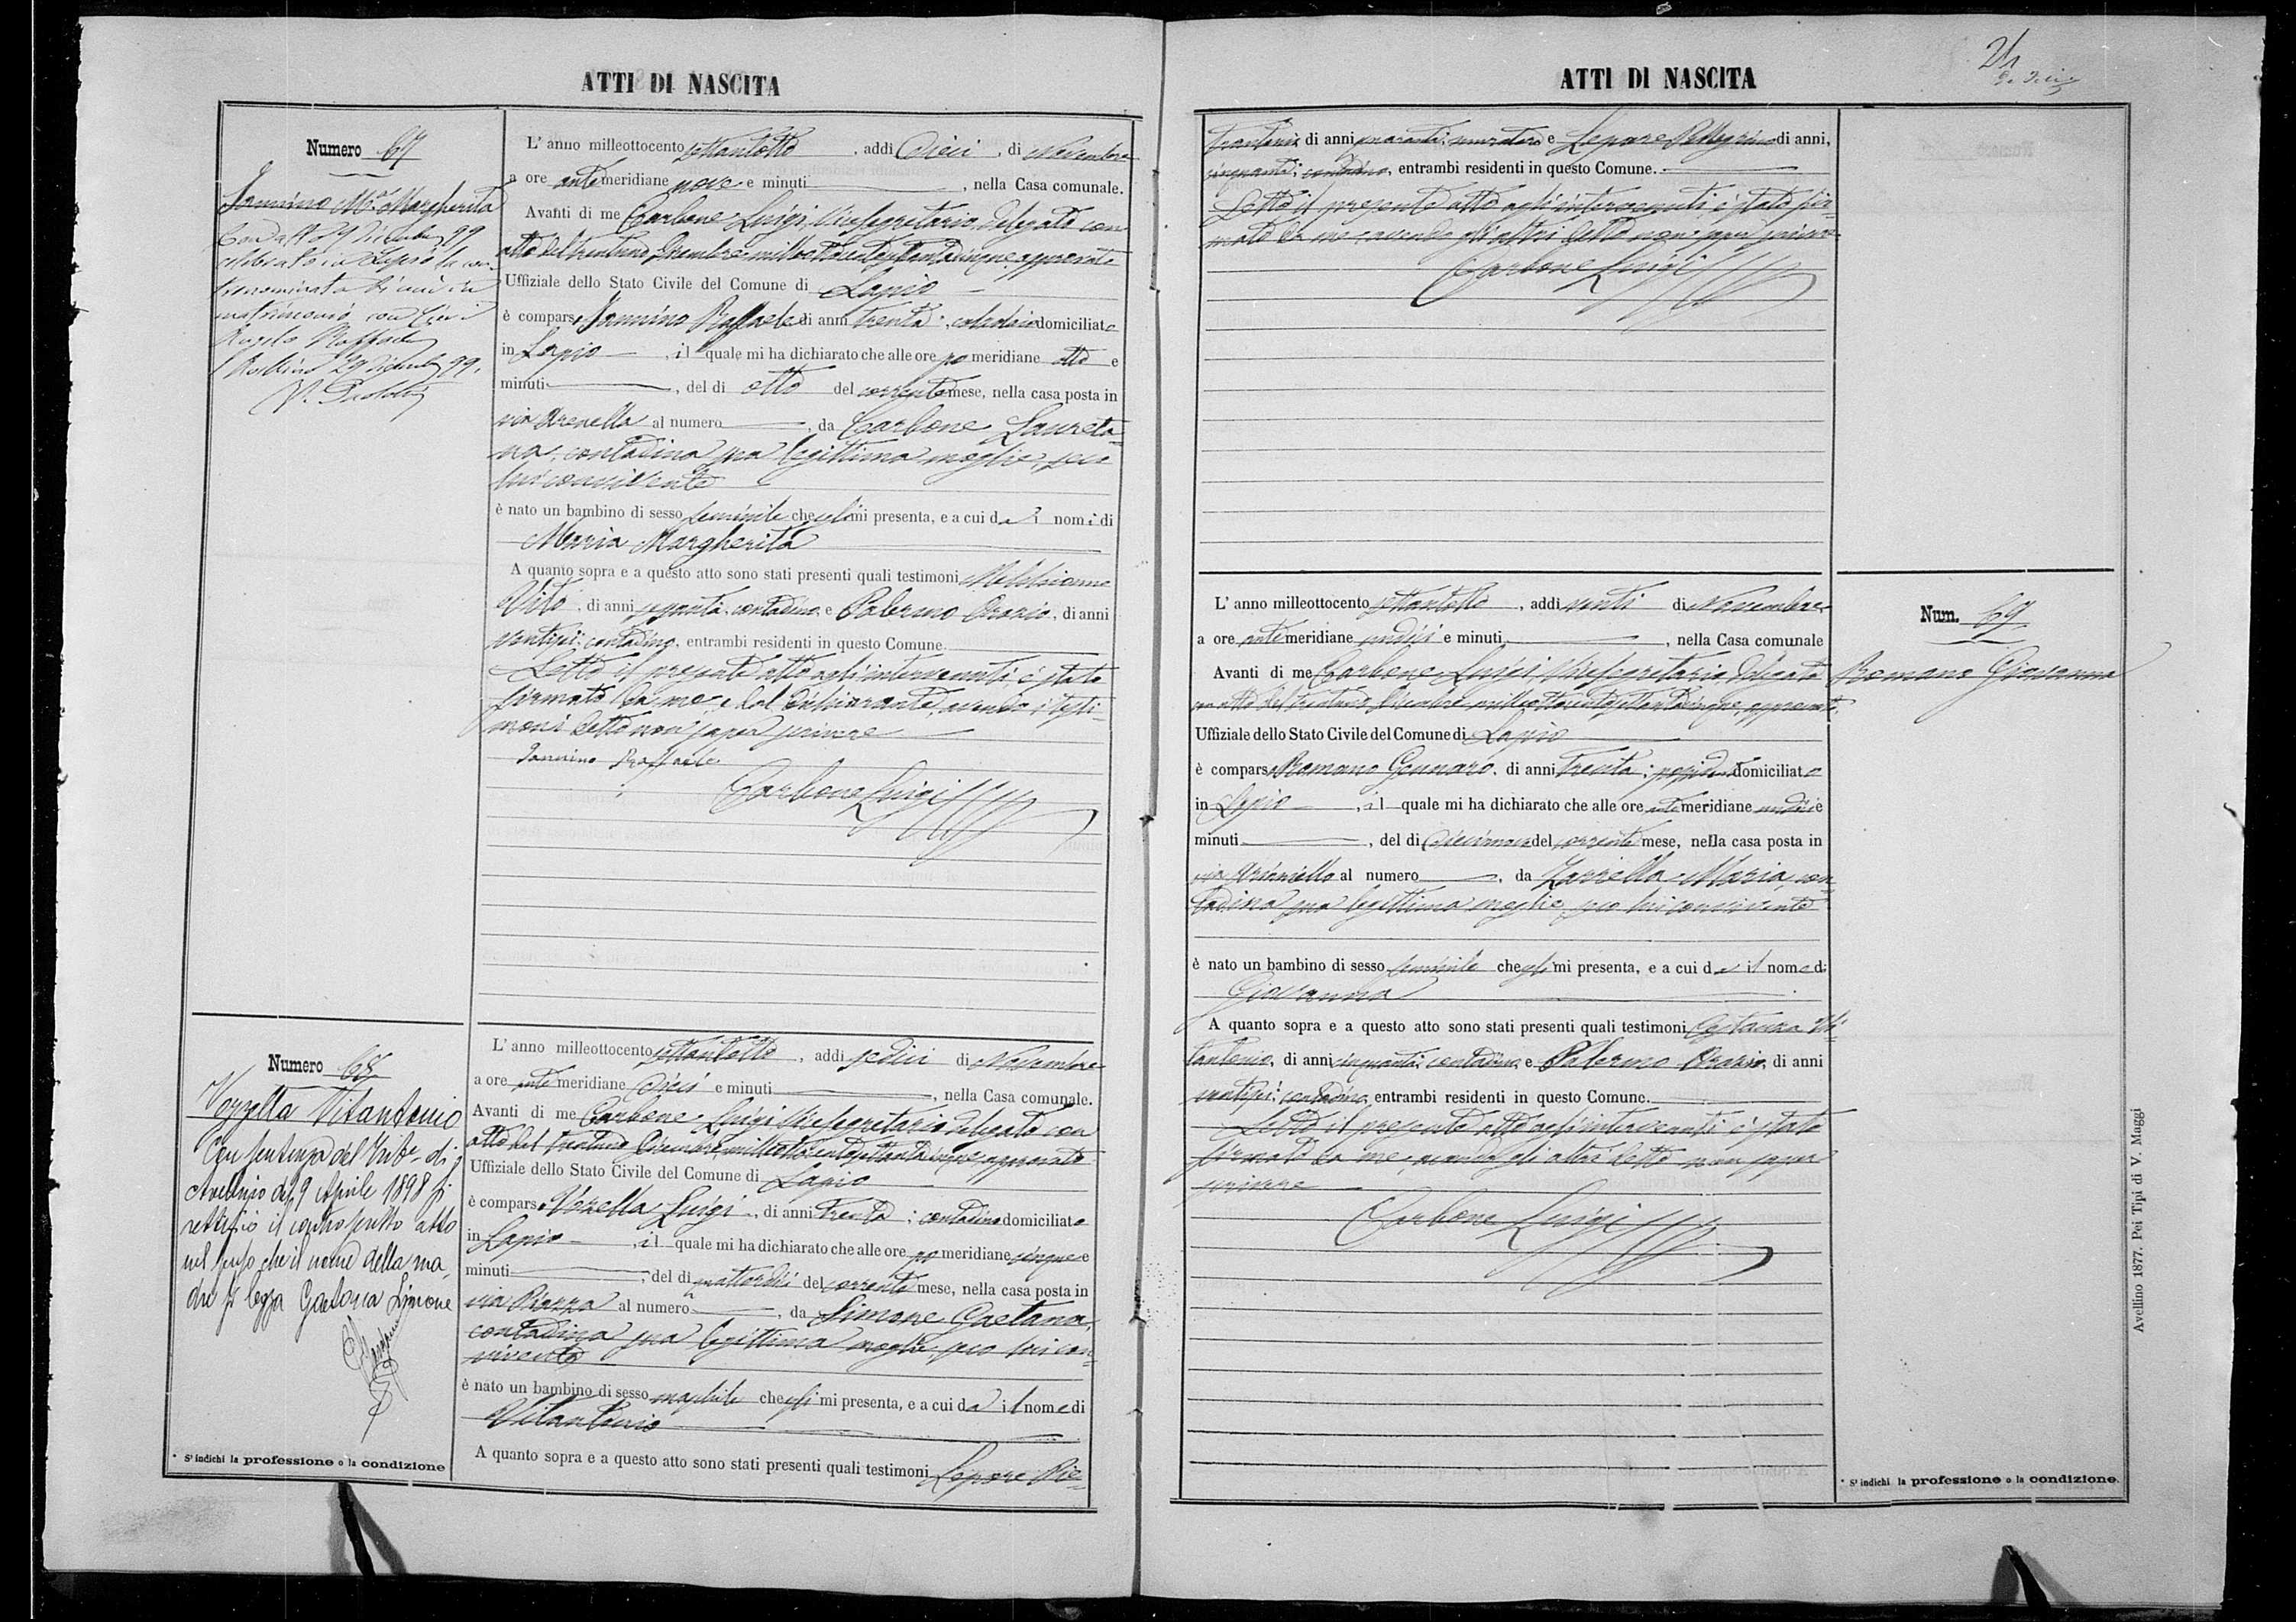 ATTI DI NASCITA
Numero 67
Iannino Mª Margherita
matrimonio con
29
L'anno milleottocento settantotto, addì Dieci, di Novembre
a ore antemeridiane nove e minuti, nella Casa comunale.
Avanti di me Carbone Luigi, Vicesegretario, delegato con
atto del trentuno Dicembre milleottocentosettantacinque, approvato
Uffiziale dello Stato Civile del Comune di Lapio
è comparso Iannino Raffaele di anni trenta, domiciliato
in Lapio, il quale mi ha dichiarato che alle ore pomeridiane otto e
minuti, del dì otto del corrente mese, nella casa posta in
via Arenella al numero, da Carbone Laureta-
na, contadina sua legittima moglie, seco
lui convivente
è nato un bambino di sesso feminile che egli mi presenta, e a cui dà i nomi di
Maria Margherita
A quanto sopra e a questo atto sono stati presenti quali testimoni
Vito, di anni sessanta, contadino e Palermo Orazio, di anni
ventisei, contadino, entrambi residenti in questo Comune.
Letto il presente atto agl'intervenuti, è stato
firmato da me, e dal dichiarante, avendo i testi-
moni detto non saper scrivere
Iannino Raffaele
Carbone Luigi
Numero 68
Vozzella Vitantonio
Con sentenza del Trib. di
Avellino del 9 Aprile 1898 si
rettificò il controscritto atto
nel senso che il nome della ma-
dre si legga Gaetana Limone
* Si indichi la professione o la condizione
L'anno milleottocento settantotto, addì sedici di Novembre
a ore antemeridiane dieci e minuti, nella Casa comunale.
Avanti di me Carbone Luigi Vicesegretario delegato con
atto del trentuno Dicembre milleottocentosettantacinque, approvato
Uffiziale dello Stato Civile del Comune di Lapio
è comparso Vozzella Luigi, di anni trenta; contadino domiciliato
in Lapio, il quale mi ha dichiarato che alle ore pomeridiane cinque e
minuti, del dì quattordici del corrente mese, nella casa posta in
via Piazza al numero, da Simone Gaetana,
contadina sua legittima moglie, seco lui con-
vivente
è nato un bambino di sesso maschile che egli mi presenta, e a cui dà il nome di
Vitantonio
A quanto sopra e a questo atto sono stati presenti quali testimoni Lepore Pie-
ATTI DI NASCITA
24
trantonio di anni quaranta, muratore e Lepore Pellegrino di anni,
cinquanta; contadino, entrambi residenti in questo Comune.
Letto il presente atto agl'intervenuti, è stato fir-
mato da me, avendo gli altri detto non saper scrivere
Carbone Luigi
Num. 69
Romano Giovanna
L'anno milleottocento settantotto, addì venti di Novembre
a ore antemeridiane undici e minuti, nella Casa comunale
Avanti di me Carbone Luigi, Vicesegretario, delegato
con atto del trentuno Dicembre milleottocentosettantacinque, approvato,
Uffiziale dello Stato Civile del Comune di Lapio
è comparso Romano Gennaro, di anni trenta; domiciliato
in Lapio, il quale mi ha dichiarato che alle ore antemeridiane undici e
minuti, del dì diecinove del corrente mese, nella casa posta in
via al numero, da Zarrella Maria, con-
tadina sua legittima moglie, seco lui convivente
è nato un bambino di sesso feminile che egli mi presenta, e a cui dà il nome di
Giovanna
A quanto sopra e a questo atto sono stati presenti quali testimoni Costanza Vi-
tantonio, di anni cinquanta; contadino e Palermo Orazio, di anni
ventisei; contadino, entrambi residenti in questo Comune.
Letto il presente atto agl'intervenuti è stato
firmato da me, avendo gli altri detto non saper
scrivere
Carbone Luigi
* Si indichi la professione o la condizione.
Avellino 1877. Pei Tipi di V. Maggi